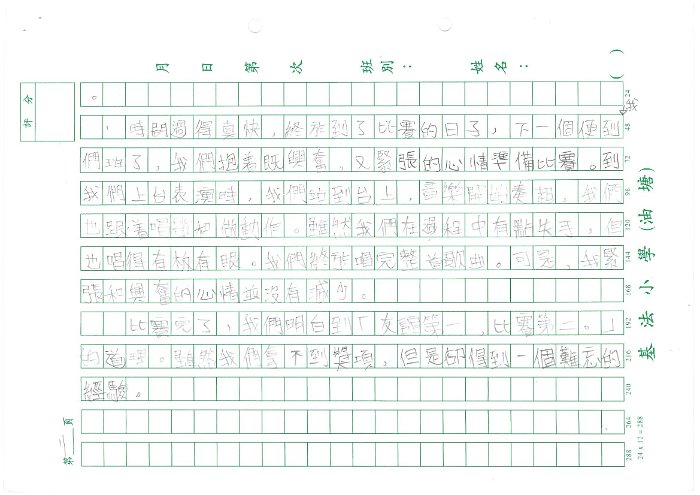 月 日 第 次 班別： 姓名： ( )
評分
。
時間過得真快，終於到了比賽的日子，下一個便到我
們班了，我們抱着既興奮，又緊張的心情準備比賽。到
我們上台表演時，我們站到台上，音樂開始奏起，我們
也跟着唱和做動作。雖然我們在過程中有點失手，但
也唱得有板有眼。我們終於唱完整首歌曲。可是，我緊
張和興奮的心情並沒有減少。
比賽完了，我們明白到「友誼第一，比賽第二。」
的道理。雖然我們拿不到獎項，但是卻得到一個難忘的
經驗。
24
48
72
96
120
144
168
192
216
240
264
288
24 x 12 = 288
基法小學 (油塘)
第二頁